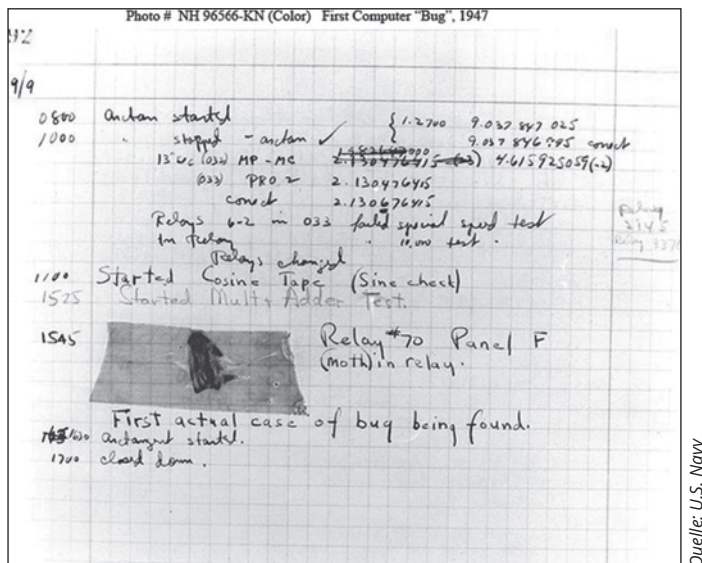 Photo # NH 96566-KN (Color) First Computer “Bug”, 1947
9/2
9/9
0800 Antan started
1000 " stopped - antan ✓ { 1.2700 9.037 847 025
9.037 846 995 correct
13"uc (032) MP - MC 2.130476415 (-3) 4.615925059(-2)
(033) PRO 2 2.130476415
correct 2.130676415
Relays 6-2 in 033 failed special speed test
In Relay " 11,000 test.
Relays changed
Relay
2145
Relay 3370
1100 Started Cosine Tape (Sine check)
1525 Started Mult + Adder Test.
1545 Relay #70 Panel F
(moth) in relay.
First actual case of bug being found.
1630 antangent started.
1700 closed down.
Quelle: U.S. Navy